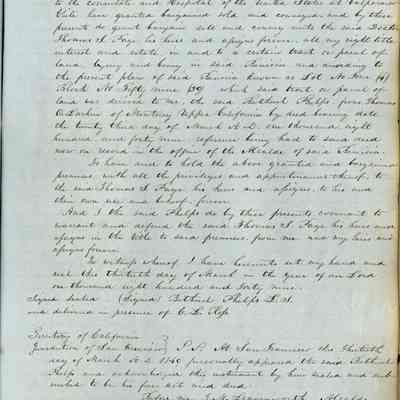 to the consulate and Hospital of the United States at Valparaiso
Chile have granted bargained sold and conveyed and by these
presents do grant bargain sell and convey unto the said Doctor
Thomas I. Page his heirs and assigns forever, all my right title
interest and estate in and to a certain tract or parcel of
land lying and being in said and according to
the present plan of said known as Lot No
Block No Fifty nine (59) which said tract or parcel of
land was deeded to me, the said Bethuel Phelps from Thomas
O Larkin of Monterey Upper California by deed bearing date
the twenty third day of March A.D. one thousand eight
hundred and forty nine reference being had to said deed
now on record in the office of the Alcalde of said
To have and to hold the above granted and bargained
premises with all the privileges and appurtenances thereof, to
the said Thomas I. Page his heirs and assigns, to his and
their own use and behoof forever.
And I the said Phelps do by these presents covenant to
warrant and defend the said Thomas I. Page his heirs and
assigns in the title to said premises, from me and my heirs and
assigns forever.
In witness whereof I have hereunto set my hand and
seal this thirtieth day of March in the year of our Lord
one thousand eight hundred and forty nine.
Signed Sealed (Signed) Bethuel Phelps L.S.
and delivered in presence of C. L. Ross
Territory of California
Jurisdiction of San Francisco } S.S. At San Francisco this thirtieth
day of March A D 1849 personally appeared the said Bethuel
Phelps and acknowledged this instrument by him sealed and sub
scribed to be his free act and deed.
Before me Leavenworth Alcalde